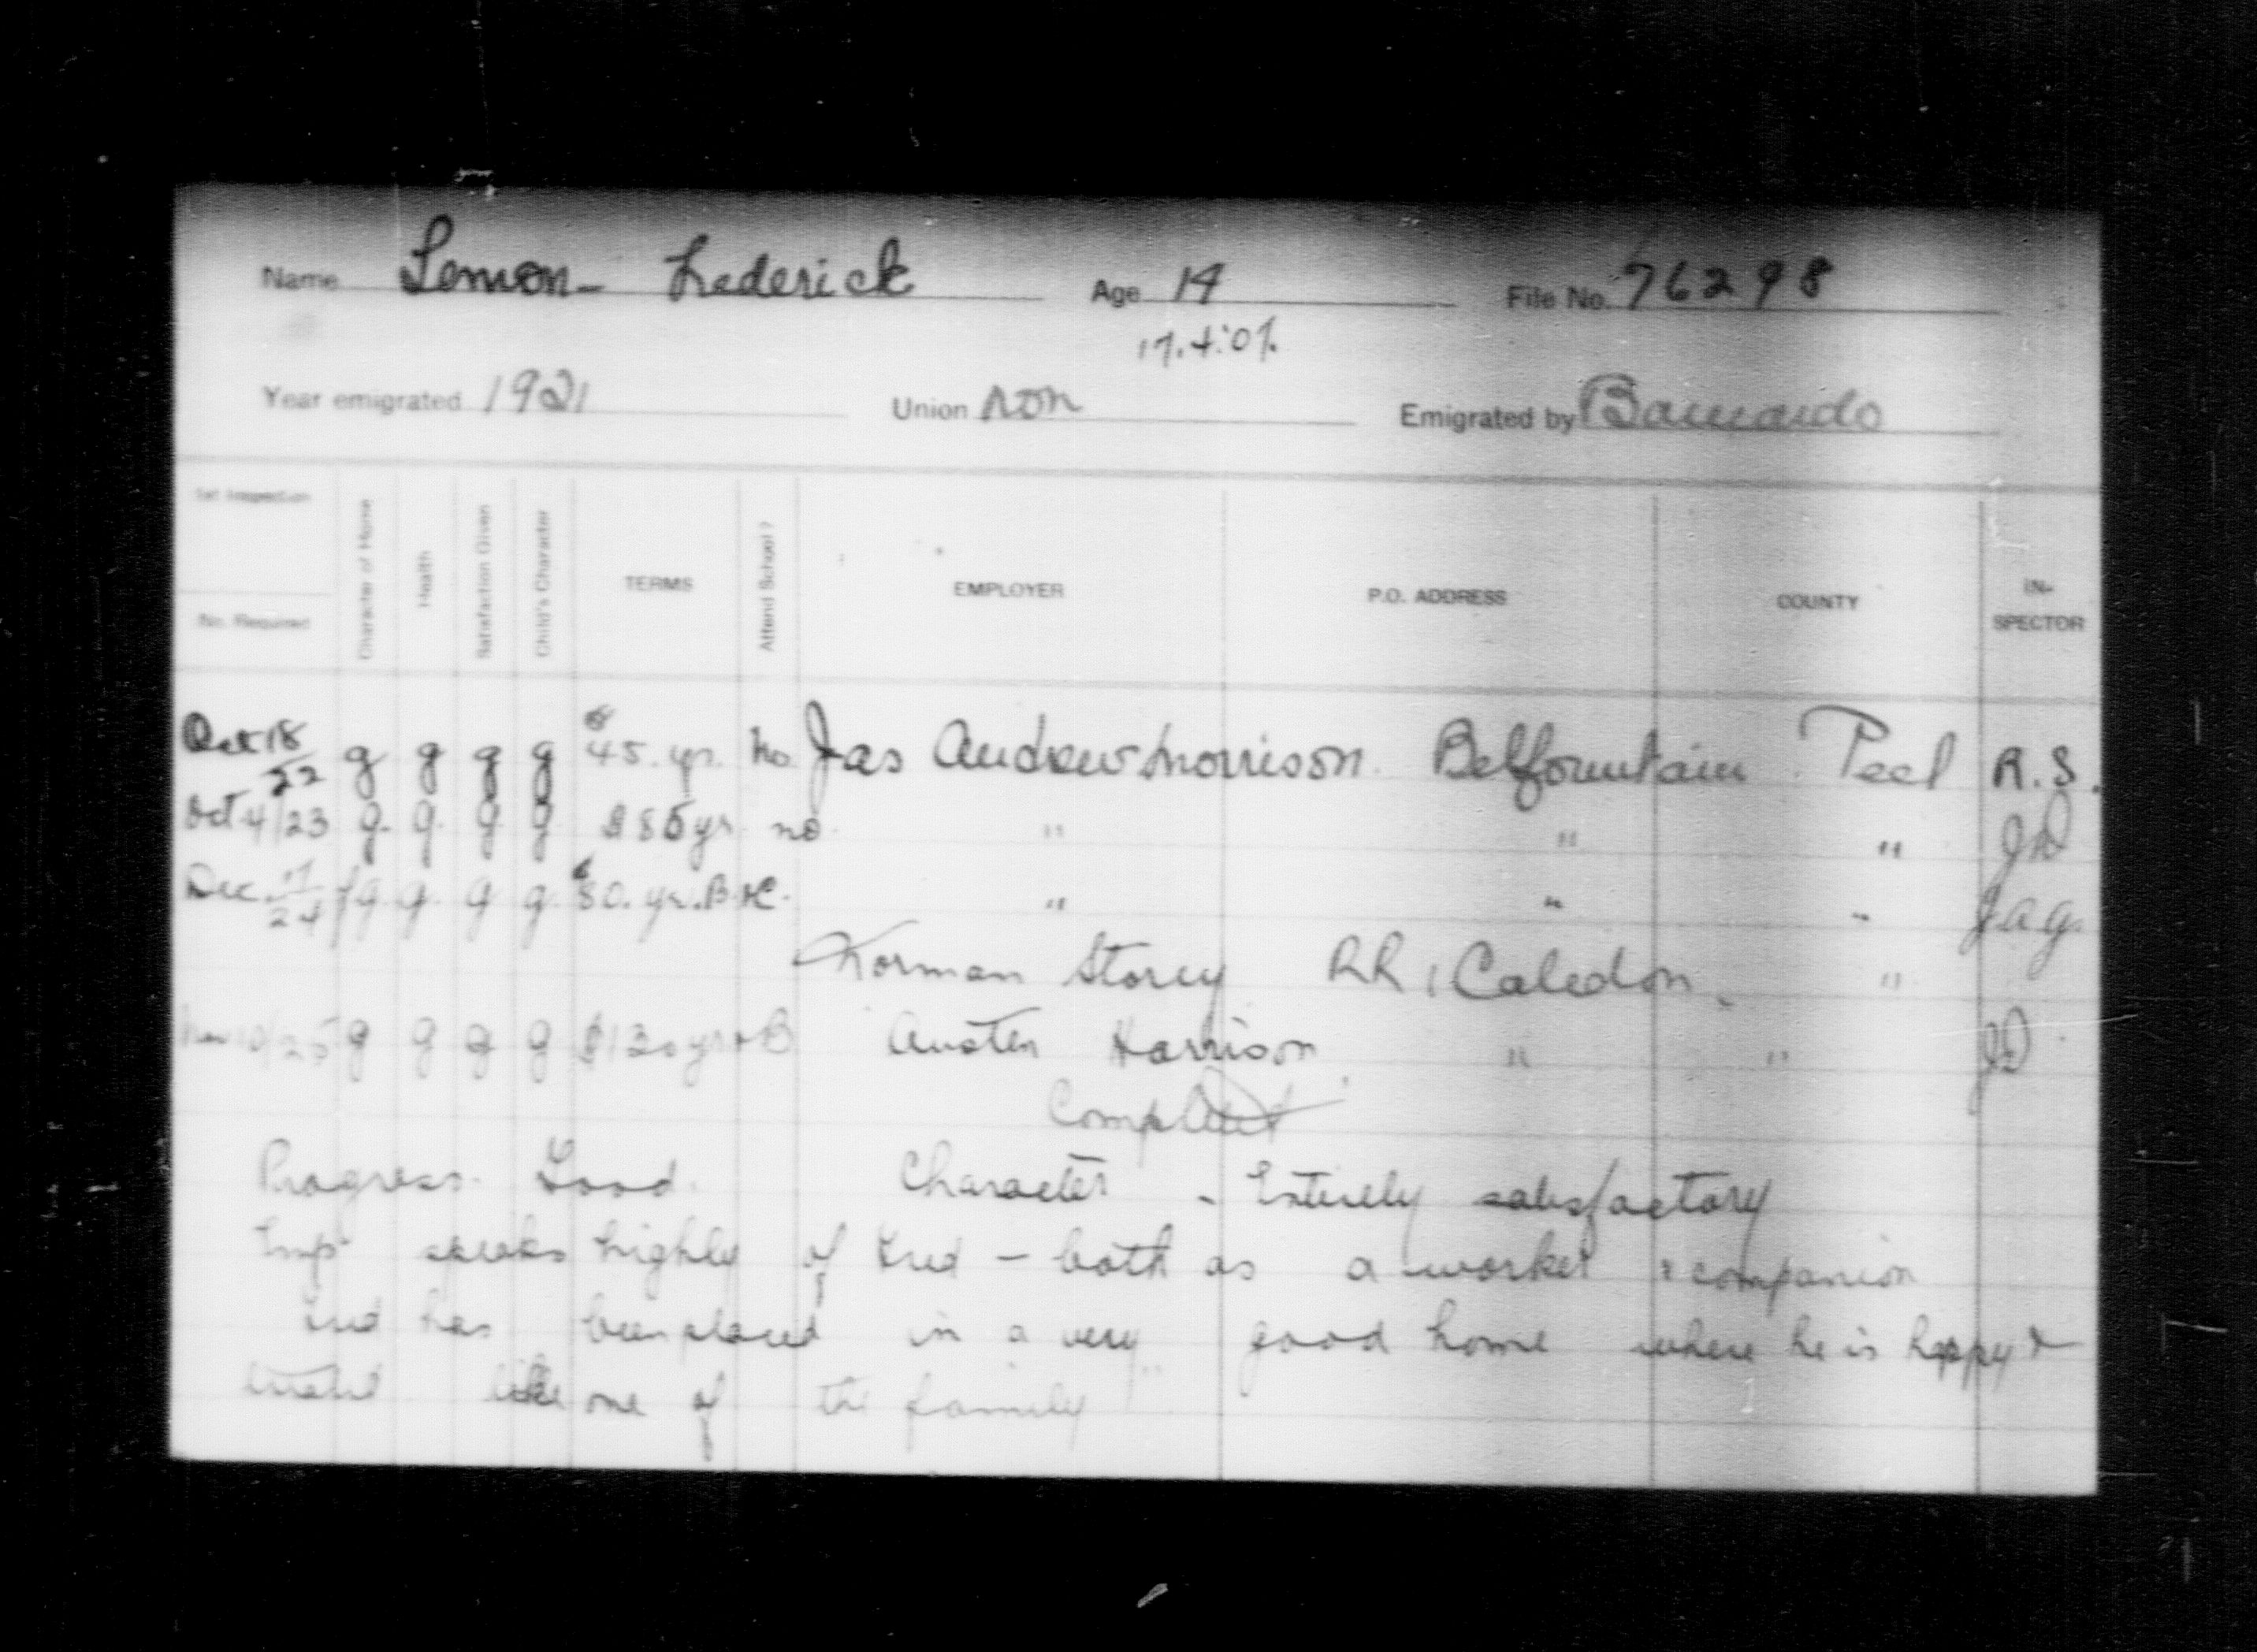 Name Lemon - Frederick Age 14 File No. 76298
17.4.07.
Year emigrated 1921 Union non Emigrated by Barnardo
1st Inspection
No. Required
Character of Home
Health
Satisfaction Given
Child's Character
TERMS
Attend School?
EMPLOYER
P.O. ADDRESS
COUNTY
IN-
SPECTOR
18/22 g g g g $45. yr. No. Jas Andrew Morrison. Belfountain Peel R.S.
Oct 4/23 g. g. g g $85 yr. no. " " " JD
Dec. 17/24 g. g. g g. $80. yr. B. & C. " " " J.A.G.
Norman Storey RR 1 Caledon. "
Nov 10/25 g g g g $130 yr & B Austen Harrison " " JD
Progress. Good. Character - Entirely satisfactory
Emp speaks highly of Fred - both as a worker & companion
Fred has been placed in a very good home where he is happy &
treated like one of the family